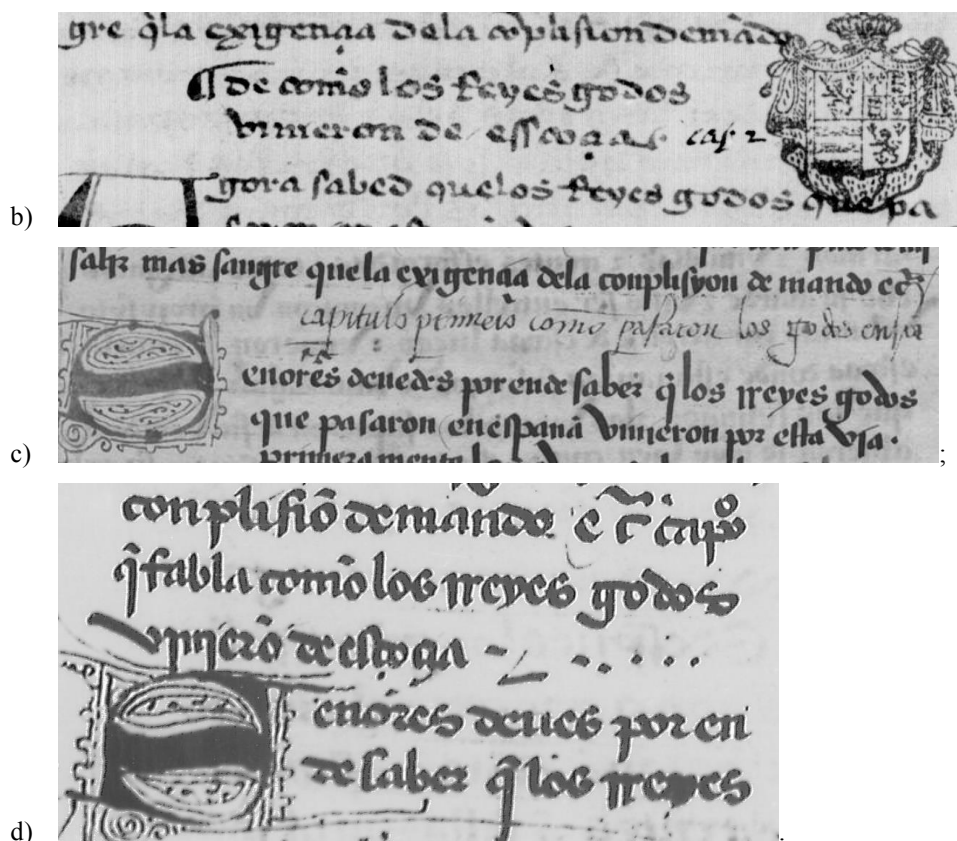 gre q̃la exigençia dela cõplision demãdo
¶ de comõ los Reyes godos
vinieron de essçoçia. cap 2
gora sabed quelos Reyes godos que pa
b)
salir mas sangre quela exigençia dela conplisyon de mando ec̃
capitulo primero como pasaron los godos
enores deuedes por ende saber q̃ los rreyes godos
que pasaron en espanã vinieron por esta vja.
primera mente
c)
;
conplisiõ de mando e c̃ capo
q̃ fabla comõ los rreyes godos
vinjerõ de esçoçia
enores deues por en
de saber q̃ los rreyes
d)
.